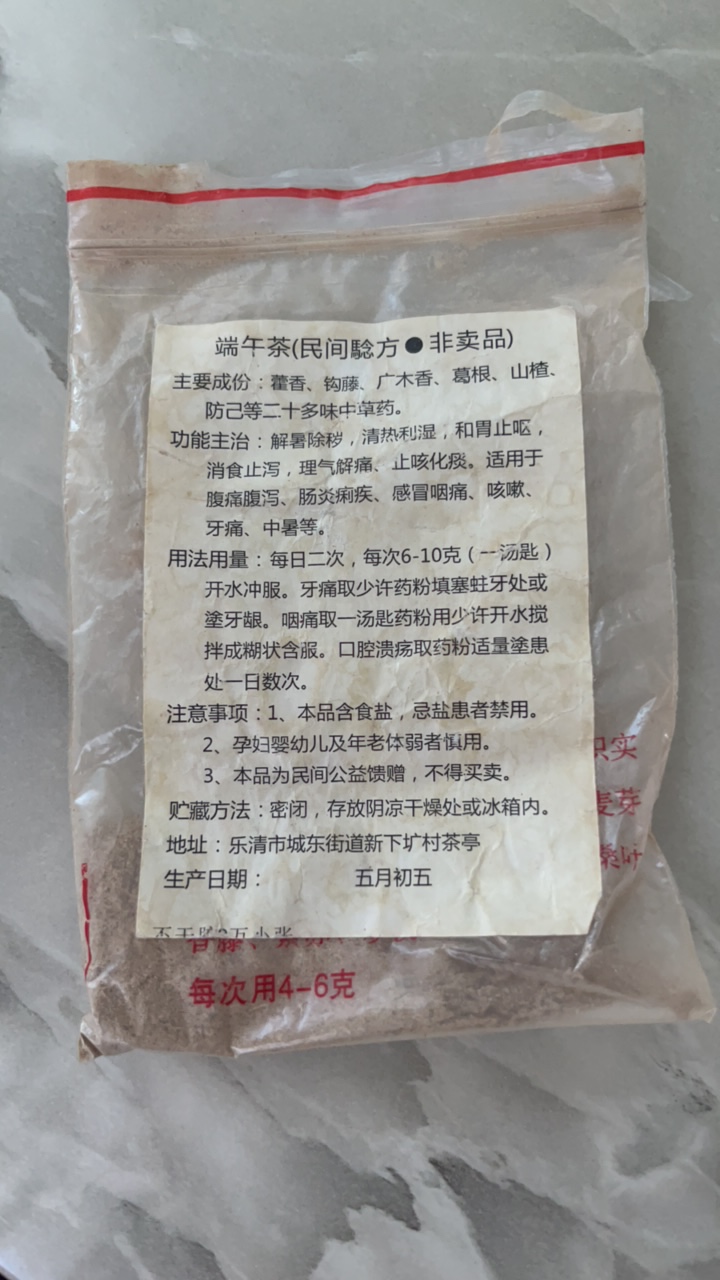 端午茶(民间騐方●非卖品)
主要成份：藿香、钩藤、广木香、葛根、山楂、
防己等二十多味中草药。
功能主治：解暑除秽，清热利湿，和胃止呕，
消食止泻，理气解痛、止咳化痰。适用于
腹痛腹泻、肠炎痢疾、感冒咽痛、咳嗽、
牙痛、中暑等。
用法用量：每日二次，每次6-10克（一汤匙）
开水冲服。牙痛取少许药粉填塞蛀牙处或
塗牙龈。咽痛取一汤匙药粉用少许开水搅
拌成糊状含服。口腔溃疡取药粉适量塗患
处一日数次。
注意事项：1、本品含食盐，忌盐患者禁用。
2、孕妇婴幼儿及年老体弱者慎用。
3、本品为民间公益馈赠，不得买卖。
贮藏方法：密闭，存放阴凉干燥处或冰箱内。
地址：乐清市城东街道新下圹村茶亭
生产日期： 五月初五
枳实
麦芽
每次用4-6克